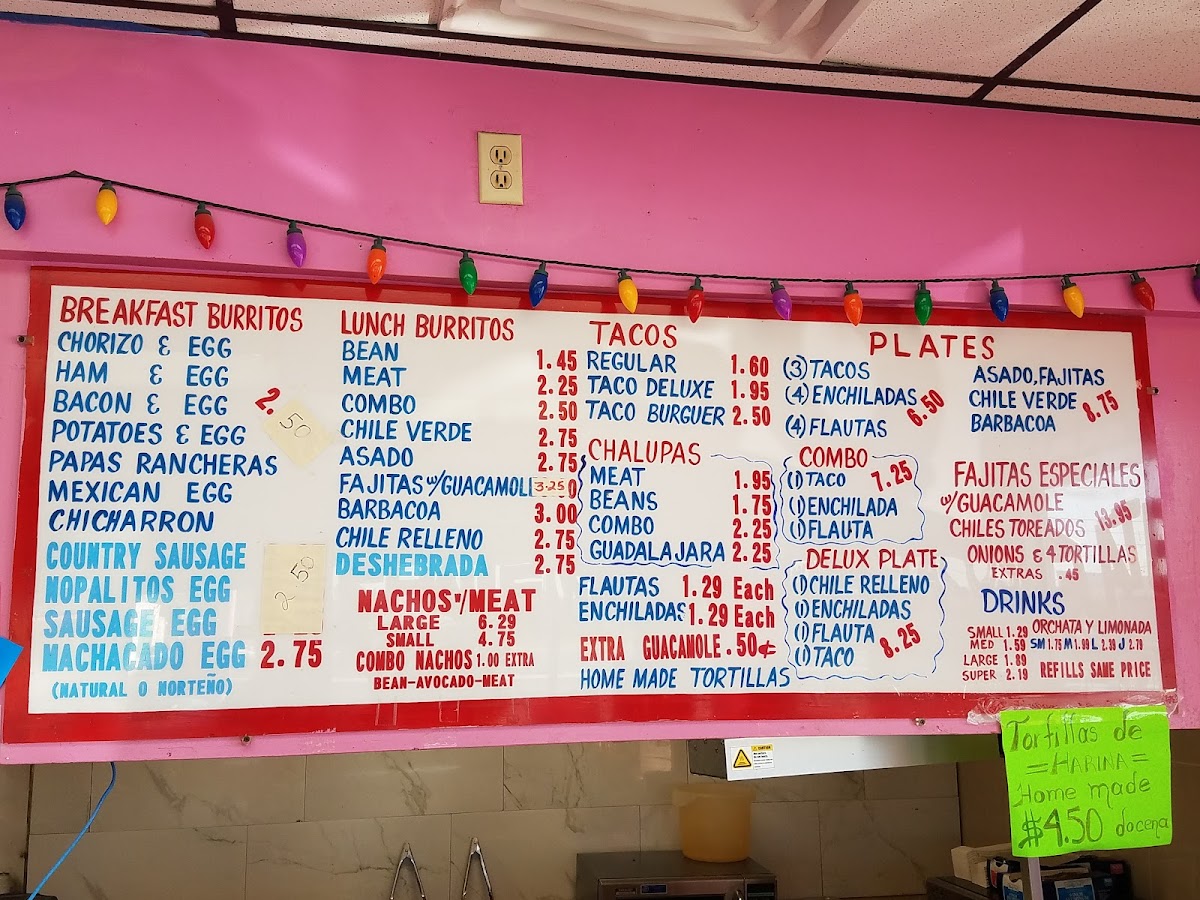 BREAKFAST BURRITOS
CHORIZO & EGG
HAM & EGG
BACON & EGG
2.50
POTATOES & EGG
PAPAS RANCHERAS
MEXICAN EGG
CHICHARRON
COUNTRY SAUSAGE
NOPALITOS EGG
2.50
SAUSAGE EGG
MACHACADO EGG 2.75
(NATURAL O NORTEÑO)
LUNCH BURRITOS
BEAN 1.45
MEAT 2.25
COMBO 2.50
CHILE VERDE 2.75
ASADO 2.75
FAJITAS W/GUACAMOLE 3.25
BARBACOA 3.00
CHILE RELLENO 2.75
DESHEBRADA 2.75
NACHOS W/MEAT
LARGE 6.29
SMALL 4.75
COMBO NACHOS 1.00 EXTRA
BEAN-AVOCADO-MEAT
TACOS
REGULAR 1.60
TACO DELUXE 1.95
TACO BURGUER 2.50
CHALUPAS
MEAT 1.95
BEANS 1.75
COMBO 2.25
GUADALAJARA 2.25
FLAUTAS 1.29 Each
ENCHILADAS 1.29 Each
EXTRA GUACAMOLE .50¢
HOME MADE TORTILLAS
PLATES
(3) TACOS
(4) ENCHILADAS 6.50
(4) FLAUTAS
COMBO
(1) TACO 7.25
(1) ENCHILADA
(1) FLAUTA
DELUX PLATE
(1) CHILE RELLENO
(1) ENCHILADAS
(1) FLAUTA 8.25
(1) TACO
ASADO, FAJITAS
CHILE VERDE 8.75
BARBACOA
FAJITAS ESPECIALES
W/GUACAMOLE
CHILES TOREADOS 13.95
ONIONS & 4 TORTILLAS
EXTRAS .45
DRINKS
SMALL 1.29
MED 1.59
LARGE 1.89
SUPER 2.19
ORCHATA Y LIMONADA
SM 1.75 M 1.99 L 2.39 J 2.79
REFILLS SAME PRICE
Tortillas de
=HARINA=
Home made
$4.50 docena
CAUTION